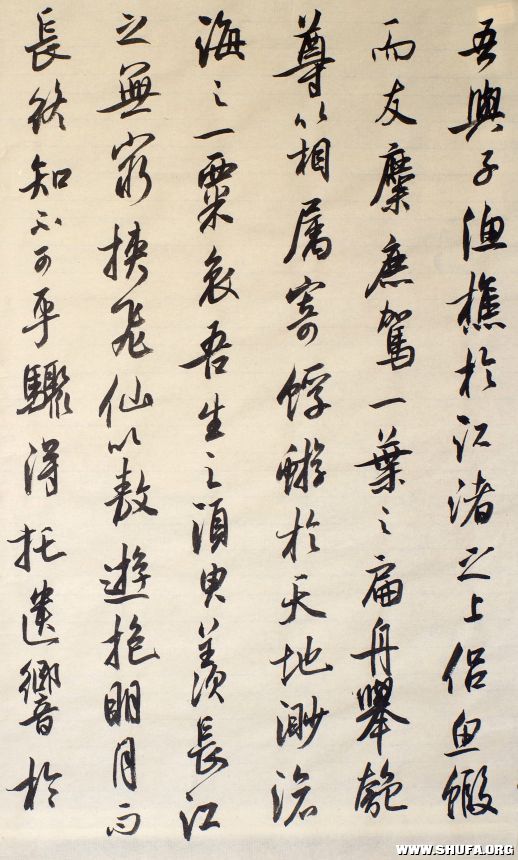 吾與子渔樵於江渚之上侣鱼蝦
而友麋鹿駕一葉之扁舟舉匏
尊以相属寄蜉蝣於天地渺滄
海之一粟哀吾生之須臾羨長江
之無窮挟飛仙以敖遊抱明月而
長終知不可乎驟得托遺響於
WWW.SHUFA.ORG